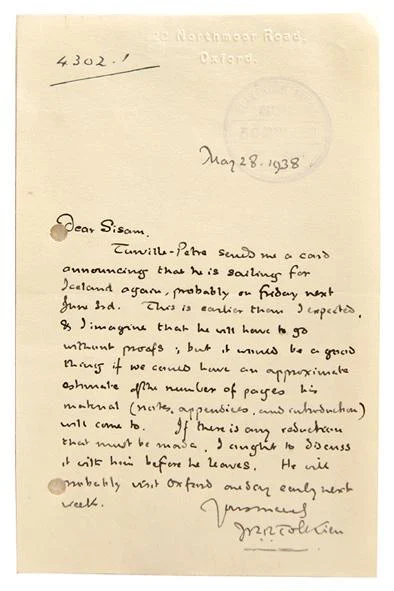 20 Northmoor Road,
Oxford.
4302.!
May 28. 1938.
Dear Sisam,
Turville-Petre sends me a card
announcing that he is sailing for
Iceland again, probably on Friday next
June 3rd. This is earlier than I expected,
& I imagine that he will have to go
without proofs; but it would be a good
thing if we could have an approximate
estimate of the number of pages his
material (notes, appendices, and introduction)
will come to. If there is any reduction
that must be made, I ought to discuss
it with him before he leaves. He will
probably visit Oxford one day early next
week.
Yours sincerely
JRR Tolkien